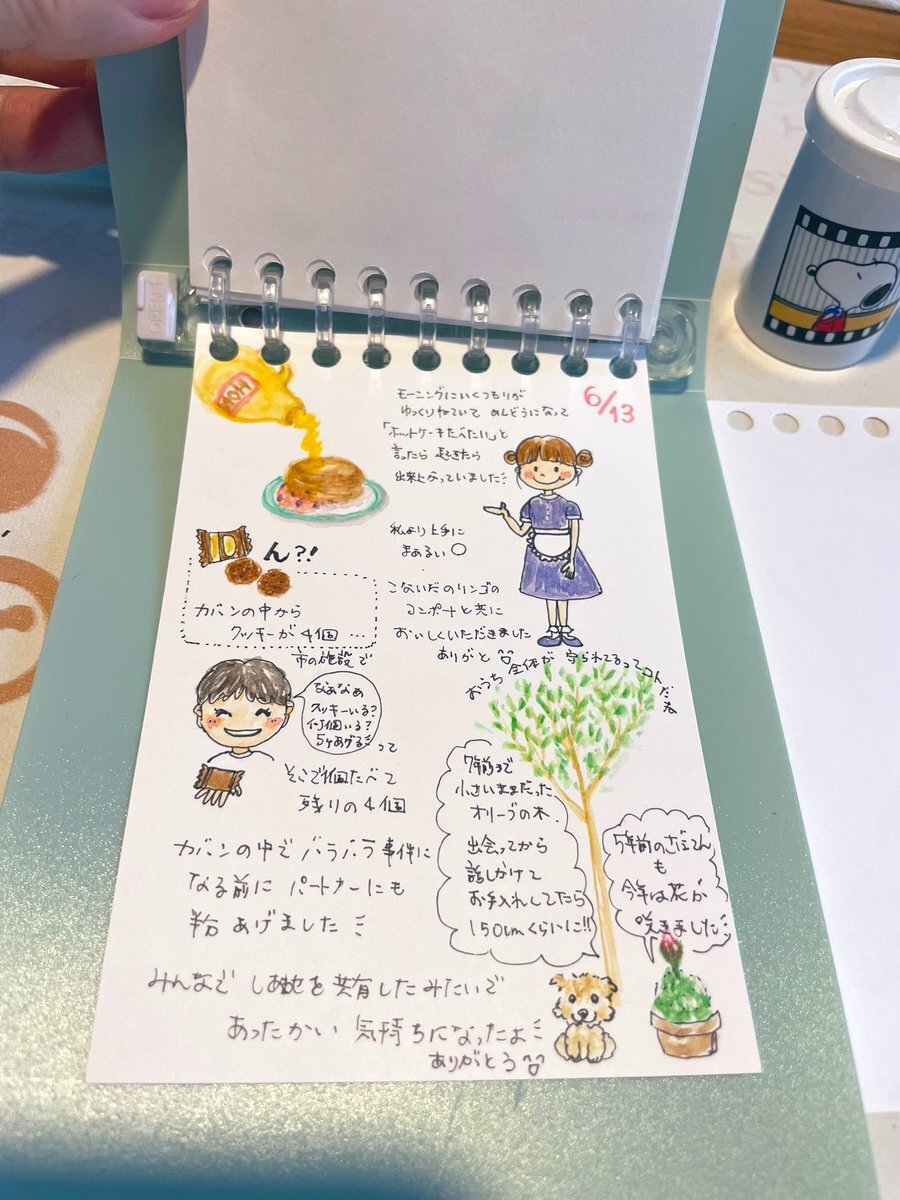 OPEN
6/13
HOT
モーニングにいくつもりが
ゆっくりねていて めんどうになって
「ホットケーキたべたい」と
言ったら 起きたら
出来上がっていました
私より上手に
まあるい〇
こないだのリンゴの
コンポートと共に
おいしくいただきました
ありがと
ん?!
カバンの中から
クッキーが4個…
市の施設で
なあなあ
クッキーいる?
何個いる?
5ヶあげる
って
そこで1個たべて
残りの4個
カバンの中でバラバラ事件に
なる前に パートナーにも
半分あげました
おうち全体が守られてるってコトだね
7年前まで
小さいままだった
オリーブの木.
出会ってから
話しかけて
お手入れしてたら
150cmくらいに!!
5年前のさぼてん
も
今年は花が
咲きました
みんなで しあわせを共有したみたいで
あったかい 気持ちになったよ
ありがとう